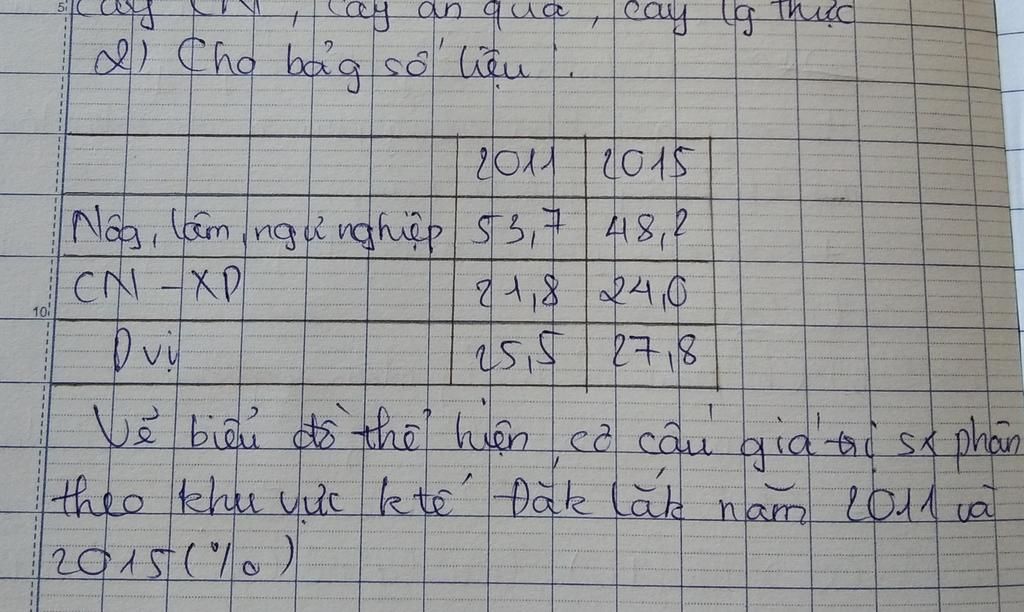 5
cây CN, cây ăn quả, cây lg thực
2) Cho bảg số liệu.
2011 2015
Nôg, lâm, ngư nghiệp 53,7 48,2
CN - XD 21,8 24,0
10
Dvị 25,5 27,8
Vẽ biểu đồ thể hiện cơ cấu giá trị sx phân
theo khu vực k tế Đăk Lăk năm 2011 và
2015 (%)